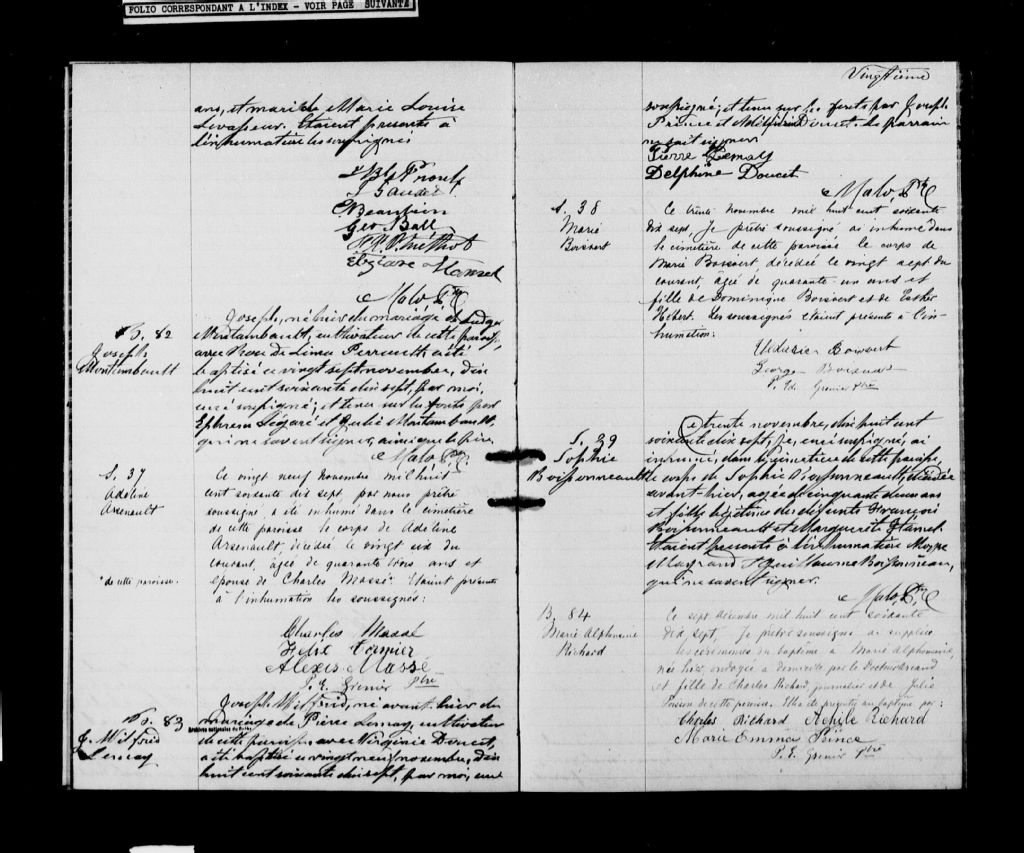 FOLIO CORRESPONDANT A L'INDEX - VOIR PAGE SUIVANTE
ans, et mari de Marie Louise
Levasseur. Etaient présents à
l'inhumation les soussignés
Proulx
Gaudet
Beaubien
Geo Ball
Elzéare
Malo, Ptre
B. 82
Joseph
Montambault
Joseph, né hier du mariage de Ludger
Montambault, cultivateur de cette paroisse,
avec Rose de Lima Perreault, a été
baptisé ce vingt sept novembre, dix
huit cent soixante dix sept, par moi,
curé soussigné; et tenu sur les fonts par
Ephrem Légaré et Julie Montambault,
qui ne savent signer, ainsi que le père.
Malo, Ptre
S. 37
Adeline
Arsenault
* de cette paroisse.
Ce vingt neuf Novembre mil huit
cent soixante dix sept, par nous prêtre
soussigné a été inhumé dans le cimetière
de cette paroisse le corps de Adeline
Arsenault, décédée le vingt six du
courant, âgée de quarante trois ans et
épouse de Charles Massé.* Etaient présents
à l'inhumation les soussignés:
Charles Massé
Alexis Massé
P. E. Grenier Ptre
B. 83
J. Wilfrid
Lemay
Joseph Wilfrid, né avant-hier du
mariage de Pierre Lemay, cultivateur
Archives nationales du Québec
de cette paroisse avec Virginie Doucet,
a été baptisé ce vingt neuf novembre, dix
huit cent soixante dix sept, par moi, curé
Vingtième
soussigné; et tenu sur les fonts par Joseph
Prince et Delphine Doucet. Le parrain
ne sait signer
Pierre Lemay
Delphine Doucet
Malo, Ptre
S. 38
Marie
Boisvert
Ce trente novembre mil huit cent soixante
dix sept, Je prêtre soussigné, ai inhumé dans
le cimetière de cette paroisse le corps de
Marie Boisvert, décédée le vingt sept du
courant, âgée de quarante un ans et
fille de Dominique Boisvert et de Esther
Hébert. Les soussignés étaient présents à l'in-
humation:
Boisvert
George Boisvert
P. Ed. Grenier Ptre
S. 39
Sophie
Boissonneault
Ce trente novembre, dix huit cent
soixante dix sept, je, curé soussigné, ai
inhumé, dans le cimetière de cette paroisse,
le corps de Sophie Boissonneault, décédée
avant-hier, agée de cinquante deux ans
et fille légitime des défunts François
Boissonneault et Marguerite Hamel.
Etaient présents à l'inhumation Moyse
et Guillaume Boissonneau,
qui ne savent signer.
Malo, Ptre
B. 84
Marie Alphonsine
Richard
Ce sept Décembre mil huit cent soixante
dix sept, Je prêtre soussigné ai suppléé
les cérémonies du baptême à Marie Alphonsine,
née hier, ondoyée à domicile par le Docteur
et fille de Charles Richard, journalier et de Julie
de cette paroisse. Elle a été présentée au baptême par:
Charles Richard Achile Richard
Marie Emma Prince
P. E. Grenier Ptre